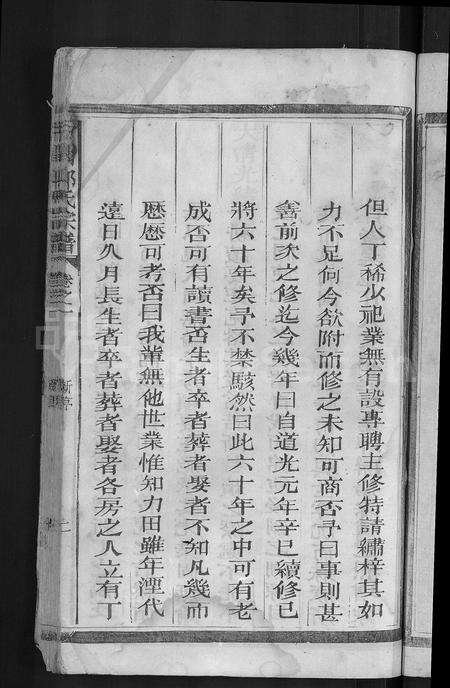 但人丁稀少祀業無有設專聘主修特請繡梓其如
力不足何今欲附而修之未知可商否予曰事則甚
善前次之修迄今幾年曰自道光元年辛巳續修已
將六十年矣予不禁駭然曰此六十年之中可有老
成否可有讀書否生者卒者葬者娶者不知凡幾而
歷歷可考否曰我輩無他世業惟知力田雖年湮代
遠日久月長生者卒者葬者娶者各房之人立有丁
氏宗譜 卷之一